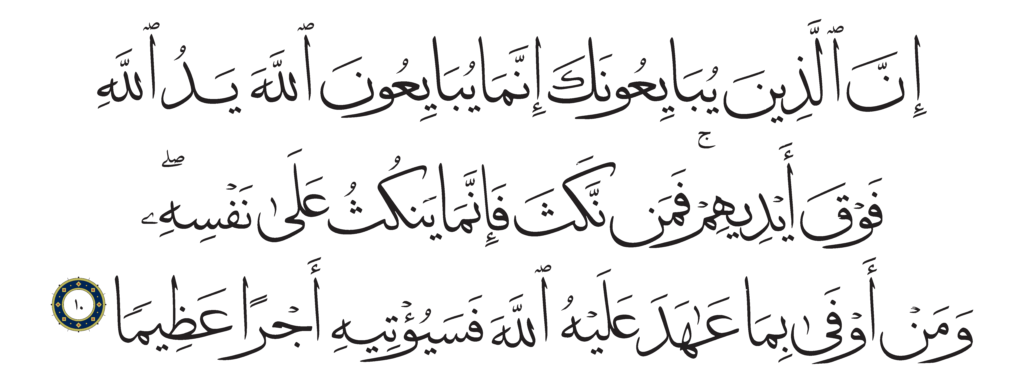 إِنَّ ٱلَّذِينَ يُبَايِعُونَكَ إِنَّمَا يُبَايِعُونَ ٱللَّهَ يَدُ ٱللَّهِ
فَوْقَ أَيْدِيهِمْ ۚ فَمَن نَّكَثَ فَإِنَّمَا يَنكُثُ عَلَىٰ نَفْسِهِۦ ۖ
وَمَنْ أَوْفَىٰ بِمَا عَـٰهَدَ عَلَيْهِ ٱللَّهَ فَسَيُؤْتِيهِ أَجْرًا عَظِيمًا ١٠